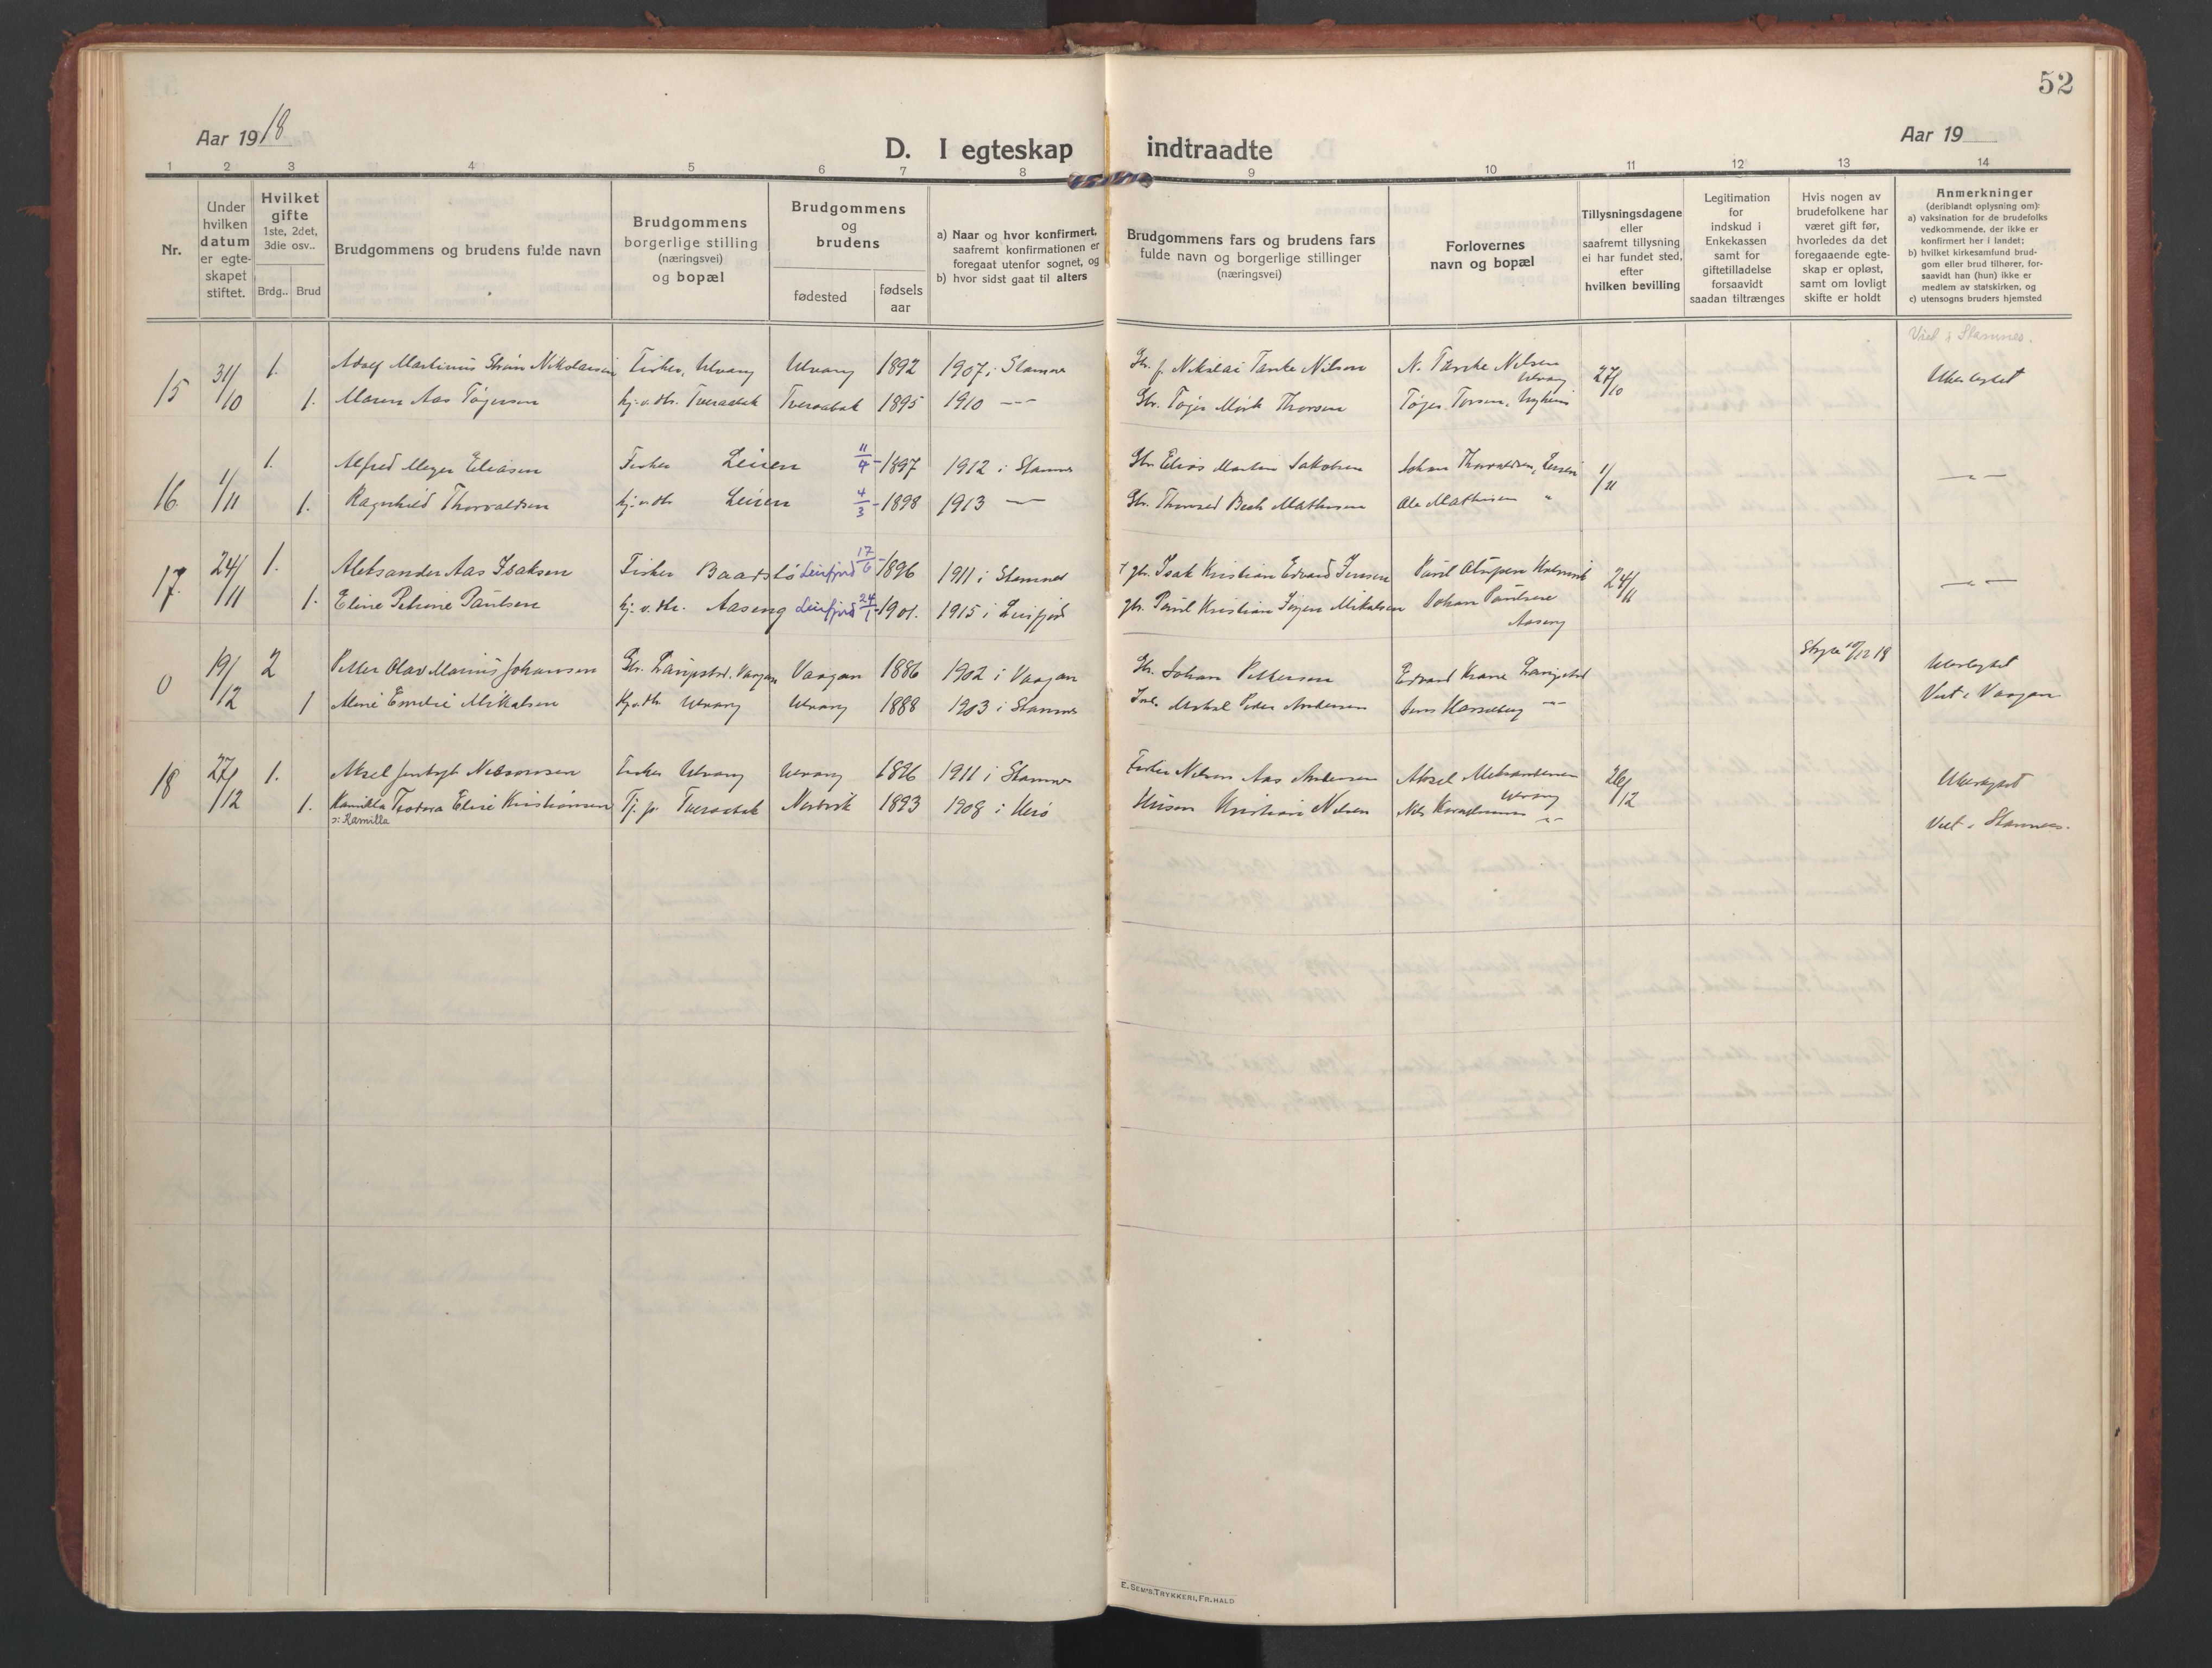 52
Aar 1918
D. I egteskap indtraadte
Aar 19
1 2 3 4 5 6 7 8 9 10 11 12 13 14
Nr.
Under
hvilken
datum
er egte-
skapet
stiftet.
Hvilket
gifte
1ste, 2det,
3die osv..
Brdg.. Brud
Brudgommens og brudens fulde navn
Brudgommens
borgerlige stilling
(næringsvei)
og bopæl
Brudgommens
og
brudens
fødested
fødsels
aar
a) Naar og hvor konfirmert,
saafremt konfirmationen er
foregaat utenfor sognet, og
b) hvor sidst gaat til alters
Brudgommens fars og brudens fars
fulde navn og borgerlige stillinger
(næringsvei)
Forlovernes
navn og bopæl
Tillysningsdagene
eller
saafremt tillysning
ei har fundet sted,
efter
hvilken bevilling
Legitimation
for
indskud i
Enkekassen
samt for
giftetilladelse
forsaavidt
saadan tiltrænges
Hvis nogen av
brudefolkene har
været gift før,
hvorledes da det
foregaaende egte-
skap er opløst,
samt om lovligt
skifte er holdt
Anmerkninger
(deriblandt oplysning om):
a) vaksination for de brudefolks
vedkommende, der ikke er
konfirmert her i landet;
b) hvilket kirkesamfund brud-
gom eller brud tilhører, for-
saavidt han (hun) ikke er
medlem av statskirken, og
c) utensogns bruders hjemsted
Viet i Stamnes.
15 31/10 1. Adolf Martinius Nikolaisen Fisker, Ulvang Ulvang 1892 1907 i Stamnes Gbr. f. Nikolai Tanke Nilsen N. Tanke Nilsen Ulvang 27/10
1. Maren Aas Tøgersen Tveraabak Tveraabak 1895 1910 — Gbr. Tøger Mørk Thorsen Tøger Torsen,
16 1/11 1. Alfred Meyer Eliasen Fisker Leinen 11/4 - 1897 1912 i Stamnes Gbr Elias Martin Jakobsen Johan Thorvaldsen, Leinen 1/11 — " —
1. Ragnhild Thorvaldsen Leinen 4/3 - 1898 1913 — Gbr. Thorvald Bech Mathisen Ole Mathisen "
17. 24/11 1. Aleksander Aas Isaksen Fisker Baadslø Leirfjord 17/6 - 1896 1911 i Stamnes gbr. Isak Kristian Edvard Jensen 24/11 — " —
1. Eline Petrine Paulsen Aaseng Leirfjord 24/1 - 1901. 1915 i Leirfjord gbr. Paul Kristian Jørgen Mikalsen Johan Paulsen
Aaseng
0 19/12 2 Petter Olav Marius Johansen Vaagan 1886 1902 i Vaagan Gbr. Johan Pettersen Edvard Krane
1 Mine Emelie Mikalsen Ulvang Ulvang 1888 1903 i Stamnes Mikal Peder Andersen — " — Viet i Vaagan
18 27/12 1. Aksel Nilsonsen Fisker Ulvang Ulvang 1896 1911 i Stamnes Fisker Nilson Aas Andersen Aksel Ulvang 26/12
1. Kamilla Teodora Elise Kristiansen Tj. p. Tveraabak Nordvik 1893 1908 i Herø Kristian Nilsen — " —
ɔ: Kamilla
Viet i Stamnes.
E. SEM'S TRYKKERI, FR.HALD